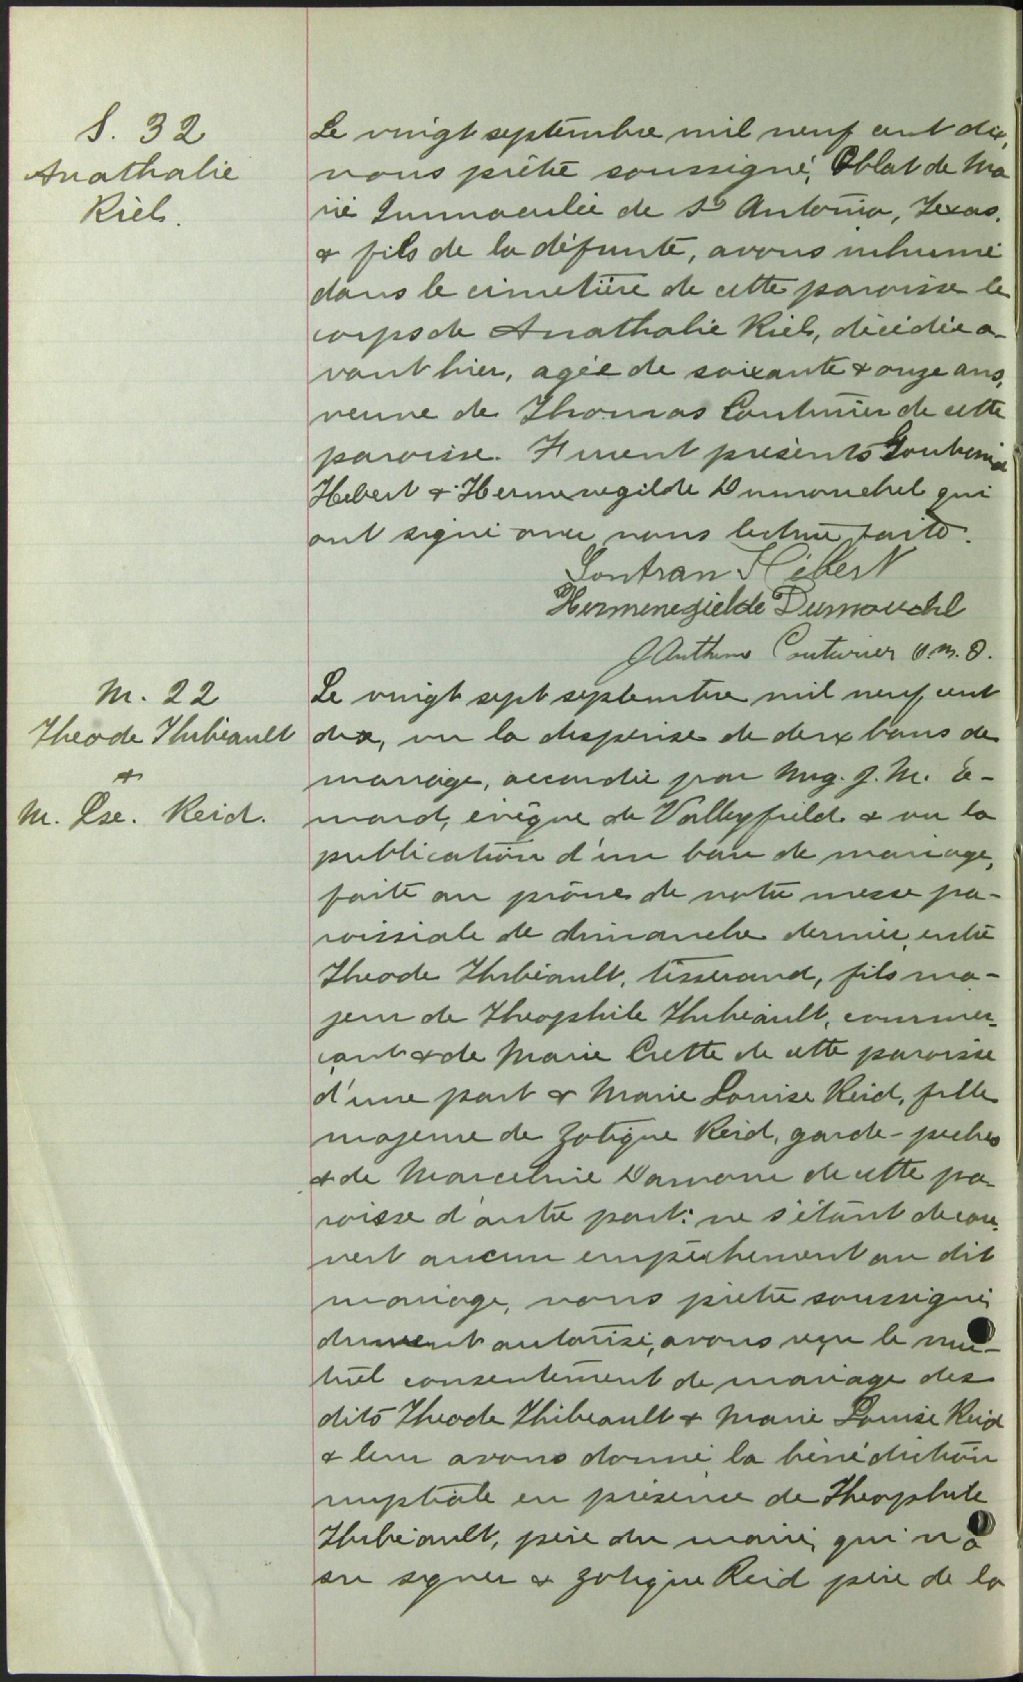 S. 32
Anathalie
Riel.
Le vingt septembre mil neuf cent dix,
nous prêtre soussigné, Oblat de Ma
rie Immaculée de St Antonio, Texas,
& fils de la défunte, avons inhumé
dans le cimetière de cette paroisse le
corps de Anathalie Riel, décédée a-
vant hier, agée de soixante & onze ans,
veuve de Thomas Couturier de cette
paroisse. Furent présents
Hebert & Hermenegilde Dumouchel qui
ont signé avec nous lecture faite.
Gontran Hébert
Hermenegielde Dumouchel
J Arthur Couturier O.M.I.
M. 22
Theode Thibeault
&
M. Lse. Reid.
Le vingt sept septembre mil neuf cent
dix, vu la dispense de deux bans de
mariage, accordée par Mgr. J. M. E-
mard, évêque de Valleyfield & vu la
publication d'un ban de mariage,
faite au prône de notre messe pa-
roissiale de dimanche dernier, entre
Theode Thibeault, tisserand, fils ma-
jeur de Theophile Thibeault, commer-
çant & de Marie Crette de cette paroisse
d'une part & Marie Louise Reid, fille
majeure de Zotique Reid, garde-pêches
& de Marceline Daoust de cette pa-
roisse d'autre part: ne s'étant décou-
vert aucun empêchement au dit
mariage, nous prêtre soussigné,
dument autorisé, avons reçu le mu-
tuel consentement de mariage des
dits Theode Thibeault & Marie Louise Reid
& leur avons donné la bénédiction
nuptiale en présence de Theophile
Thibeault, père du marié, qui n'a
su signer & Zotique Reid père de la